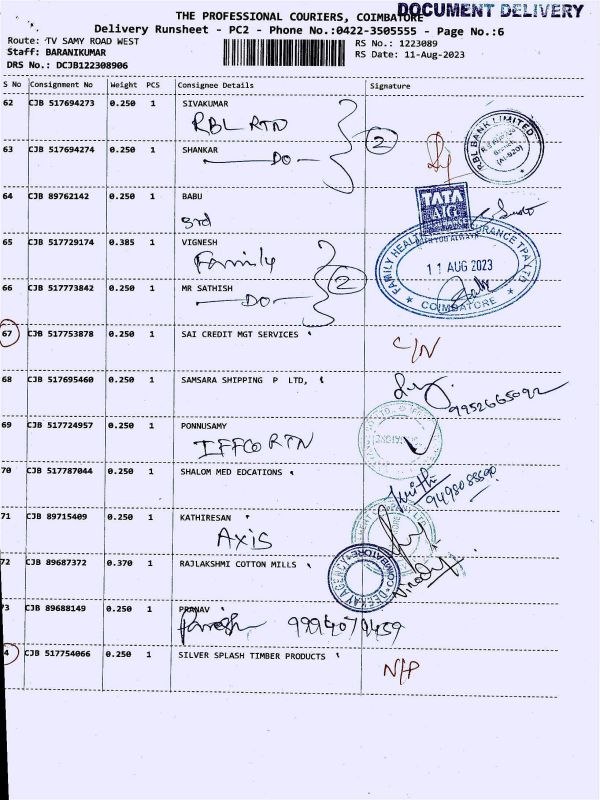 DOCUMENT DELIVERY
THE PROFESSIONAL COURIERS, COIMBATORE
Delivery Runsheet - PC2 - Phone No.:0422-3505555 - Page No.:6
Route: TV SAMY ROAD WEST
RS No.: 1223089
Staff: BARANIKUMAR
RS Date: 11-Aug-2023
DRS No.: DCJB122308906
S No Consignment No Weight PCS Consignee Details Signature
62 CJB 517694273 0.250 1 SIVAKUMAR
RBL RTN
2
RBL BANK LIMITED
63 CJB 517694274 0.250 1 SHANKAR
DO
64 CJB 89762142 0.250 1 BABU
3rd
TATA
AIG
INSURANCE
WITH YOU ALWAYS
65 CJB 517729174 0.385 1 VIGNESH
Family
2
FAMILY HEALTH INSURANCE TPA LTD
11 AUG 2023
COIMBATORE
66 CJB 517773842 0.250 1 MR SATHISH
DO
67 CJB 517753878 0.250 1 SAI CREDIT MGT SERVICES
C/N
68 CJB 517695460 0.250 1 SAMSARA SHIPPING P LTD,
9952665092
69 CJB 517724957 0.250 1 PONNUSAMY
IFFCO RTN
70 CJB 517787044 0.250 1 SHALOM MED EDCATIONS
71 CJB 89715409 0.250 1 KATHIRESAN
AXIS
72 CJB 89687372 0.370 1 RAJLAKSHMI COTTON MILLS
73 CJB 89688149 0.250 1 PRANAV
9994079459
4 CJB 517754066 0.250 1 SILVER SPLASH TIMBER PRODUCTS
N/P